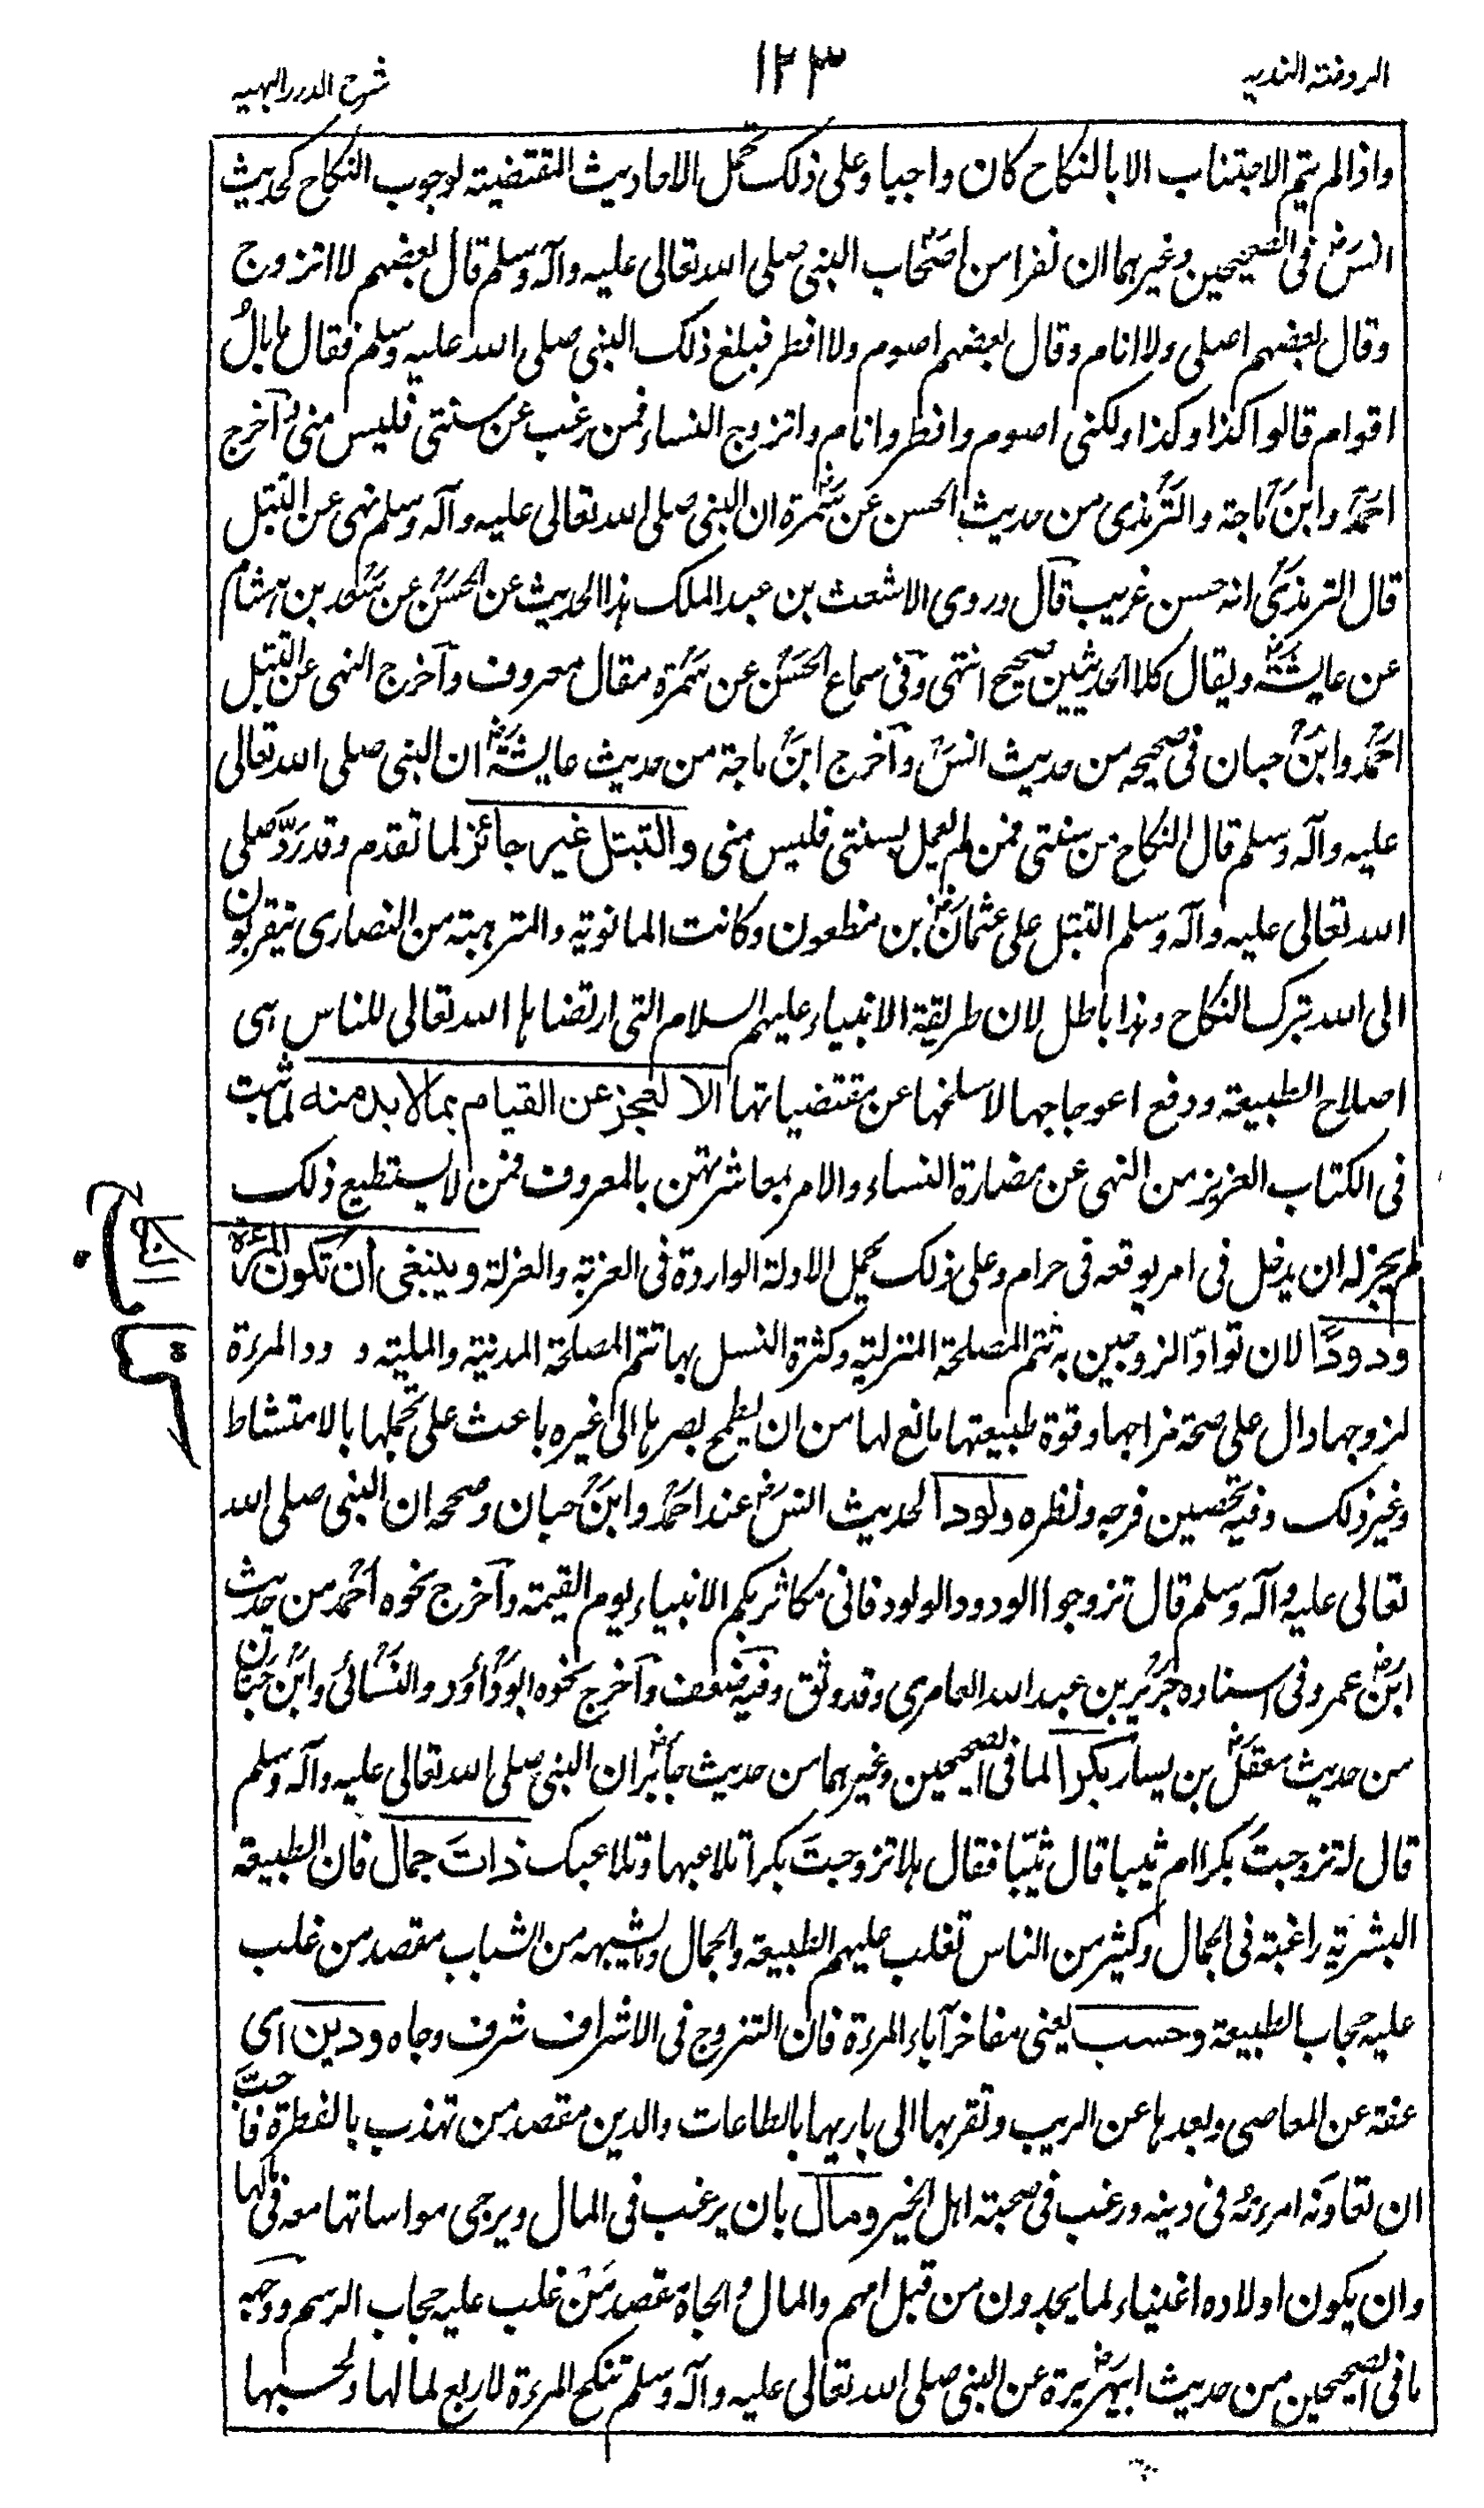 الروضة الندیہ ١٢٣ شرح الدرر البہیہ
واذا لم یتم الاجتناب الا بالنکاح کان واجبا وعلی ذلک تحمل الاحادیث المقتضیۃ لوجوب النکاح کحدیث
انسؓ فی الصحیحین وغیرہما ان نفرا من اصحاب النبی صلی اللہ تعالی علیہ وآلہ وسلم قال بعضہم لا اتزوج
وقال بعضہم اصلی ولا انام وقال بعضہم اصوم ولا افطر فبلغ ذلک النبی صلی اللہ علیہ وسلم فقال ما بالُ
اقوام قالوا کذا وکذا ولکنی اصوم وافطر وانام واتزوج النساء فمن رغب عن سنتی فلیس منی وآخرج
احمدؒ وابنؒ ماجۃ والترمذی من حدیث الحسن عن سمرۃؓ ان النبی صلی اللہ تعالی علیہ وآلہ وسلم نہی عن التبتل
قال الترمذیؒ انہ حسن غریب قال وروی الاشعث بن عبد الملک ہذا الحدیث عن الحسنؒ عن سعد بن ہشام
عن عایشۃؓ ویقال کلا الحدیثین صحیح انتہی وفی سماع الحسنؒ عن سمرۃ مقال معروف وآخرج النہی عن التبتل
احمدؒ وابنؒ حبان فی صحیحہ من حدیث انسؓ وآخرج ابنؒ ماجۃ من حدیث عایشۃؓ ان النبی صلی اللہ تعالی
علیہ وآلہ وسلم قال النکاح من سنتی فمن لم یعمل بسنتی فلیس منی والتبتل غیر جائز لما تقدم وقد ردَّ صلی
اللہ تعالی علیہ وآلہ وسلم التبتل علی عثمانؓ بن مظعون وکانت المانویۃ والمترہبۃ من النصاری یتقربون
الی اللہ بترک النکاح وہذا باطل لان طریقۃ الانبیاء علیہم السلام التی ارتضاہا اللہ تعالی للناس ہی
اصلاح الطبیعۃ ودفع اعوجاجہا لا سلخہا عن مقتضیاتہا الا لعجز عن القیام بما لا بد منہ لما ثبت
فی الکتاب العزیز من النہی عن مضارۃ النساء والامر بمعاشرتہن بالمعروف فمن لا یستطیع ذلک
لم یجز لہ ان یدخل فی امر یوقعہ فی حرام وعلی ذلک تحمل الادلۃ الواردۃ فی العزبۃ والعزلۃ وینبغی أن تکون المرءۃ
ودودًا لان توادّ الزوجین بہ تتم المصلحۃ المنزلیۃ وکثرۃ النسل بہا تتم المصلحۃ المدنیۃ والملیۃ وود المرءۃ
لزوجہا دال علی صحۃ مزاجہا وقوۃ طبیعتہا مانع لہا من ان یطمح بصرہا الی غیرہ باعث علی تجملہا بالامتشاط
وغیر ذلک وفیہ تحصین فرجہ ونظرہ ولودا لحدیث انسؓ عند احمدؒ وابنؒ حبان وصححہ ان النبی صلی اللہ
تعالی علیہ وآلہ وسلم قال تزوجوا الودود الولود فانی مکاثر بکم الانبیاء یوم القیمۃ وآخرج نحوہ احمدؒ من حدیث
ابنؓ عمر وفی اسنادہ جریرؒ بن عبد اللہ العامری وقد وثق وفیہ ضعف وآخرج نحوہ ابو داؤد والنسائی وابنؒ حبان
من حدیث معقلؓ بن یسار بکرا لما فی الصحیحین وغیرہما من حدیث جابرؓ ان النبی صلی اللہ تعالی علیہ وآلہ وسلم
قال لہ تزوجتَ بکرا ام ثیبا قال ثیّبا فقال ہلا تزوجتَ بکرا تلاعبہا وتلاعبک ذات جمال فان الطبیعۃ
البشریۃ راغبۃ فی الجمال وکثیر من الناس تغلب علیہم الطبیعۃ والجمال وما یشبہہ من الشباب مقصد من غلب
علیہ حجاب الطبیعۃ وحسب یعنی مفاخر آباء المرءۃ فان التزوج فی الاشراف شرف وجاہ ودین ای
عفۃ عن المعاصی وبعدہا عن الریب وتقربہا الی باریہا بالطاعات والدین مقصد من تہذب بالفطرۃ فاحبَّ
ان تعاونَہ امرءتُہ فی دینہ ورغب فی صحبۃ اہل الخیر ومال بان یرغب فی المال ویرجی مواساتہا معہ فی مالہا
وان یکون اولادہ اغنیاء لما یجدون من قبل امہم والمال والجاہ مقصد مَنْ غلب علیہ حجاب الرسم ووجہہ
ما فی الصحیحین من حدیث ابیہریرۃؓ عن النبی صلی اللہ تعالی علیہ وآلہ وسلم تنکح المرءۃ لاربع لمالہا ولحسبہا